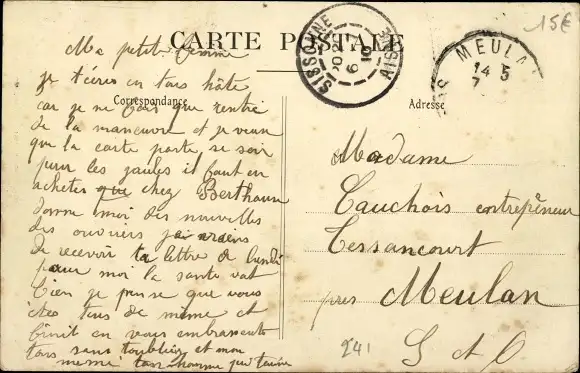 15€
CARTE POSTALE
SISSONNE
AISNE
6
10
MEULAN
14 5
7
Correspondance
Adresse
Ma petite femme
je t'écris en tous hâte
car je ne fais que rentré
de la manœuvre et je veux
que la carte parte se soir
pour les gaules il faut en
acheter que chez Berthoum
donne moi des nouvelles
des ouvriers j'ai
de recevoir ta lettre de lundi
pour moi la santé vat
bien je pense que vous
etes tous de meme et
finit en vous embrassants
tous sans t'oublier et mon
ton homme qui t'aime
Madame
Cauchois entrepreneur
Tessancourt
près Meulan
S et O
241